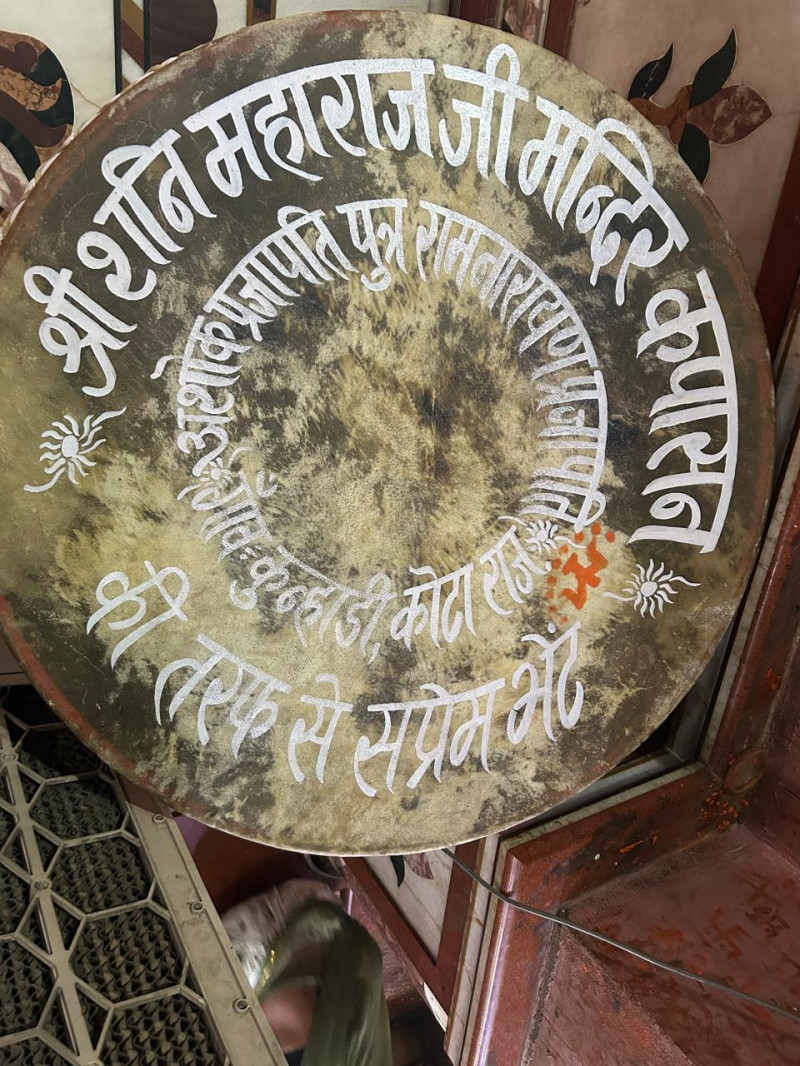 श्री शनि महाराज जी मन्दिर कपासन
अशोक प्रजापति पुत्र रामनारायण प्रजापति
गाँव: कुन्हाडी, कोटा राज.
की तरफ से सप्रेम भेंट